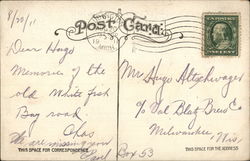 8/20/11
Post Card.
Dear Hugo
Memories of the
old White fish
Bay road.
Chas
We are missing you
THIS SPACE FOR CORRESPONDENCE
Mr Hugo Altschwager
c/o Val Blatz Brew Co
Milwaukee,
Wis
THIS SPACE FOR THE ADDRESS
Box 53